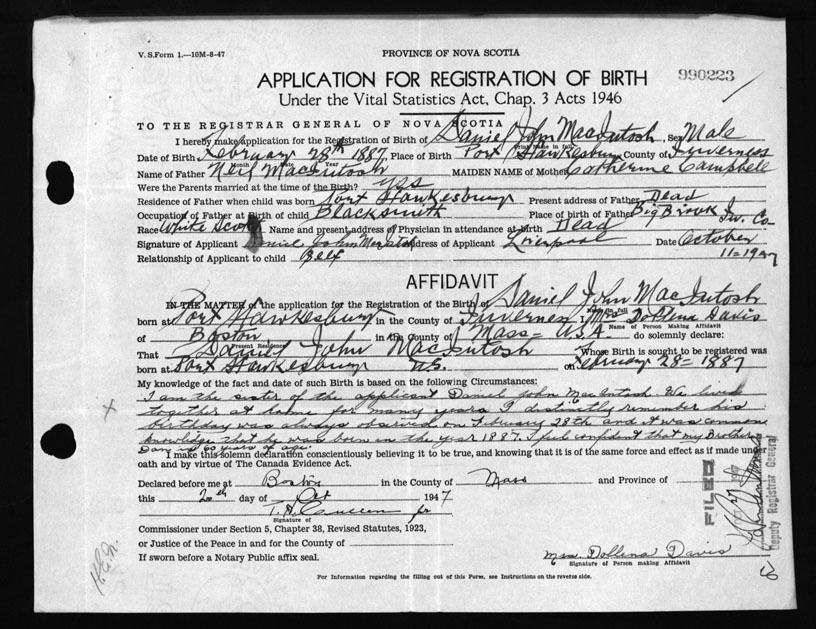 V. S. Form 1.—10M-8-47
PROVINCE OF NOVA SCOTIA
APPLICATION FOR REGISTRATION OF BIRTH
990223
Under the Vital Statistics Act, Chap. 3 Acts 1946
TO THE REGISTRAR GENERAL OF NOVA SCOTIA
I hereby make application for the Registration of Birth of Daniel John MacIntosh, Sex Male
Print Name in full
Date of Birth February 28th 1887, Place of Birth Port Hawkesbury County of Inverness
Month Day Year
Name of Father Neil MacIntosh MAIDEN NAME of Mother Catherine Campbell
Were the Parents married at the time of the Birth? yes
Residence of Father when child was born Port Hawkesbury Present address of Father Dead
Occupation of Father at Birth of child Blacksmith Place of birth of Father Big Brook Inv. Co
Race White Scotch Name and present address of Physician in attendance at birth Dead
Signature of Applicant Daniel John MacIntosh Address of Applicant Liverpool Date October
Relationship of Applicant to child Self 11-1947
AFFIDAVIT
IN THE MATTER of the application for the Registration of the Birth of Daniel John MacIntosh
Name in full
born at Port Hawkesbury in the County of Inverness I, Mrs Dollena Davis
Name of Person Making Affidavit
of Boston in the County of Mass- U.S.A. do solemnly declare:
Present Residence
That Daniel John MacIntosh Whose Birth is sought to be registered was
born at Port Hawkesbury N.S. on February 28- 1887
My knowledge of the fact and date of such Birth is based on the following Circumstances:
I am the sister of the applicant Daniel John MacIntosh. We lived
together at home for many years I distinctly remember his
birthday was always observed on February 28th and it was common
knowledge that he was born in the year 1887. I feel confident that my Brother
Dan is 60 years of age.
I make this solemn declaration conscientiously believing it to be true, and knowing that it is of the same force and effect as if made under
oath and by virtue of The Canada Evidence Act.
Declared before me at Boston in the County of Mass and Province of
this 20th day of Oct 1947
Signature of
Commissioner under Section 5, Chapter 38, Revised Statutes, 1923,
or Justice of the Peace in and for the County of
If sworn before a Notary Public affix seal.
Mrs. Dollena Davis
Signature of Person making Affidavit
For Information regarding the filling out of this Form, see Instructions on the reverse side.
FILED
Deputy Registrar General